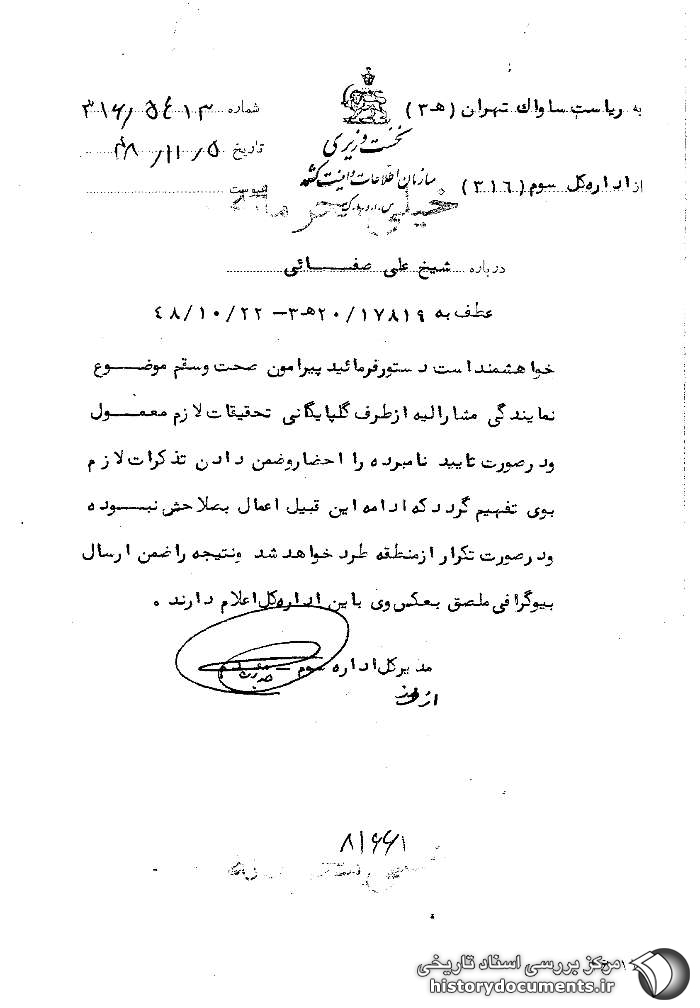 به ریاست ساواك تهران (هـ ۳)
شماره ۳۱۶/۵٤۱۳
نخست وزیری
تاریخ ۴۸/۱۱/۵
سازمان اطلاعات و امنیت کشور
از اداره کل سوم (۳۱٦)
پیوست
س.ا.و.ا.ك
خیلی محرمانه
درباره شیخ علی صفائی
عطف به ۲۰/۱۷۸۱۹هـ۳ - ٤۸/۱۰/۲۲
خواهشمند است دستور فرمائید پیرامون صحت وسقم موضوع
نمایندگی مشارالیه از طرف گلپایگانی تحقیقات لازم معمول
و در صورت تایید نامبرده را احضار و ضمن دادن تذکرات لازم
بوی تفهیم گردد که ادامه این قبیل اعمال بصلاحش نبوده
و در صورت تکرار از منطقه طرد خواهد شد و نتیجه را ضمن ارسال
بیوگرافی ملصق بعکس وی باین اداره کل اعلام دارند .
مدیرکل اداره سوم - مقدم
از طرف
۸۱۶۶۱
مرکز بررسی اسناد تاریخی
historydocuments.ir